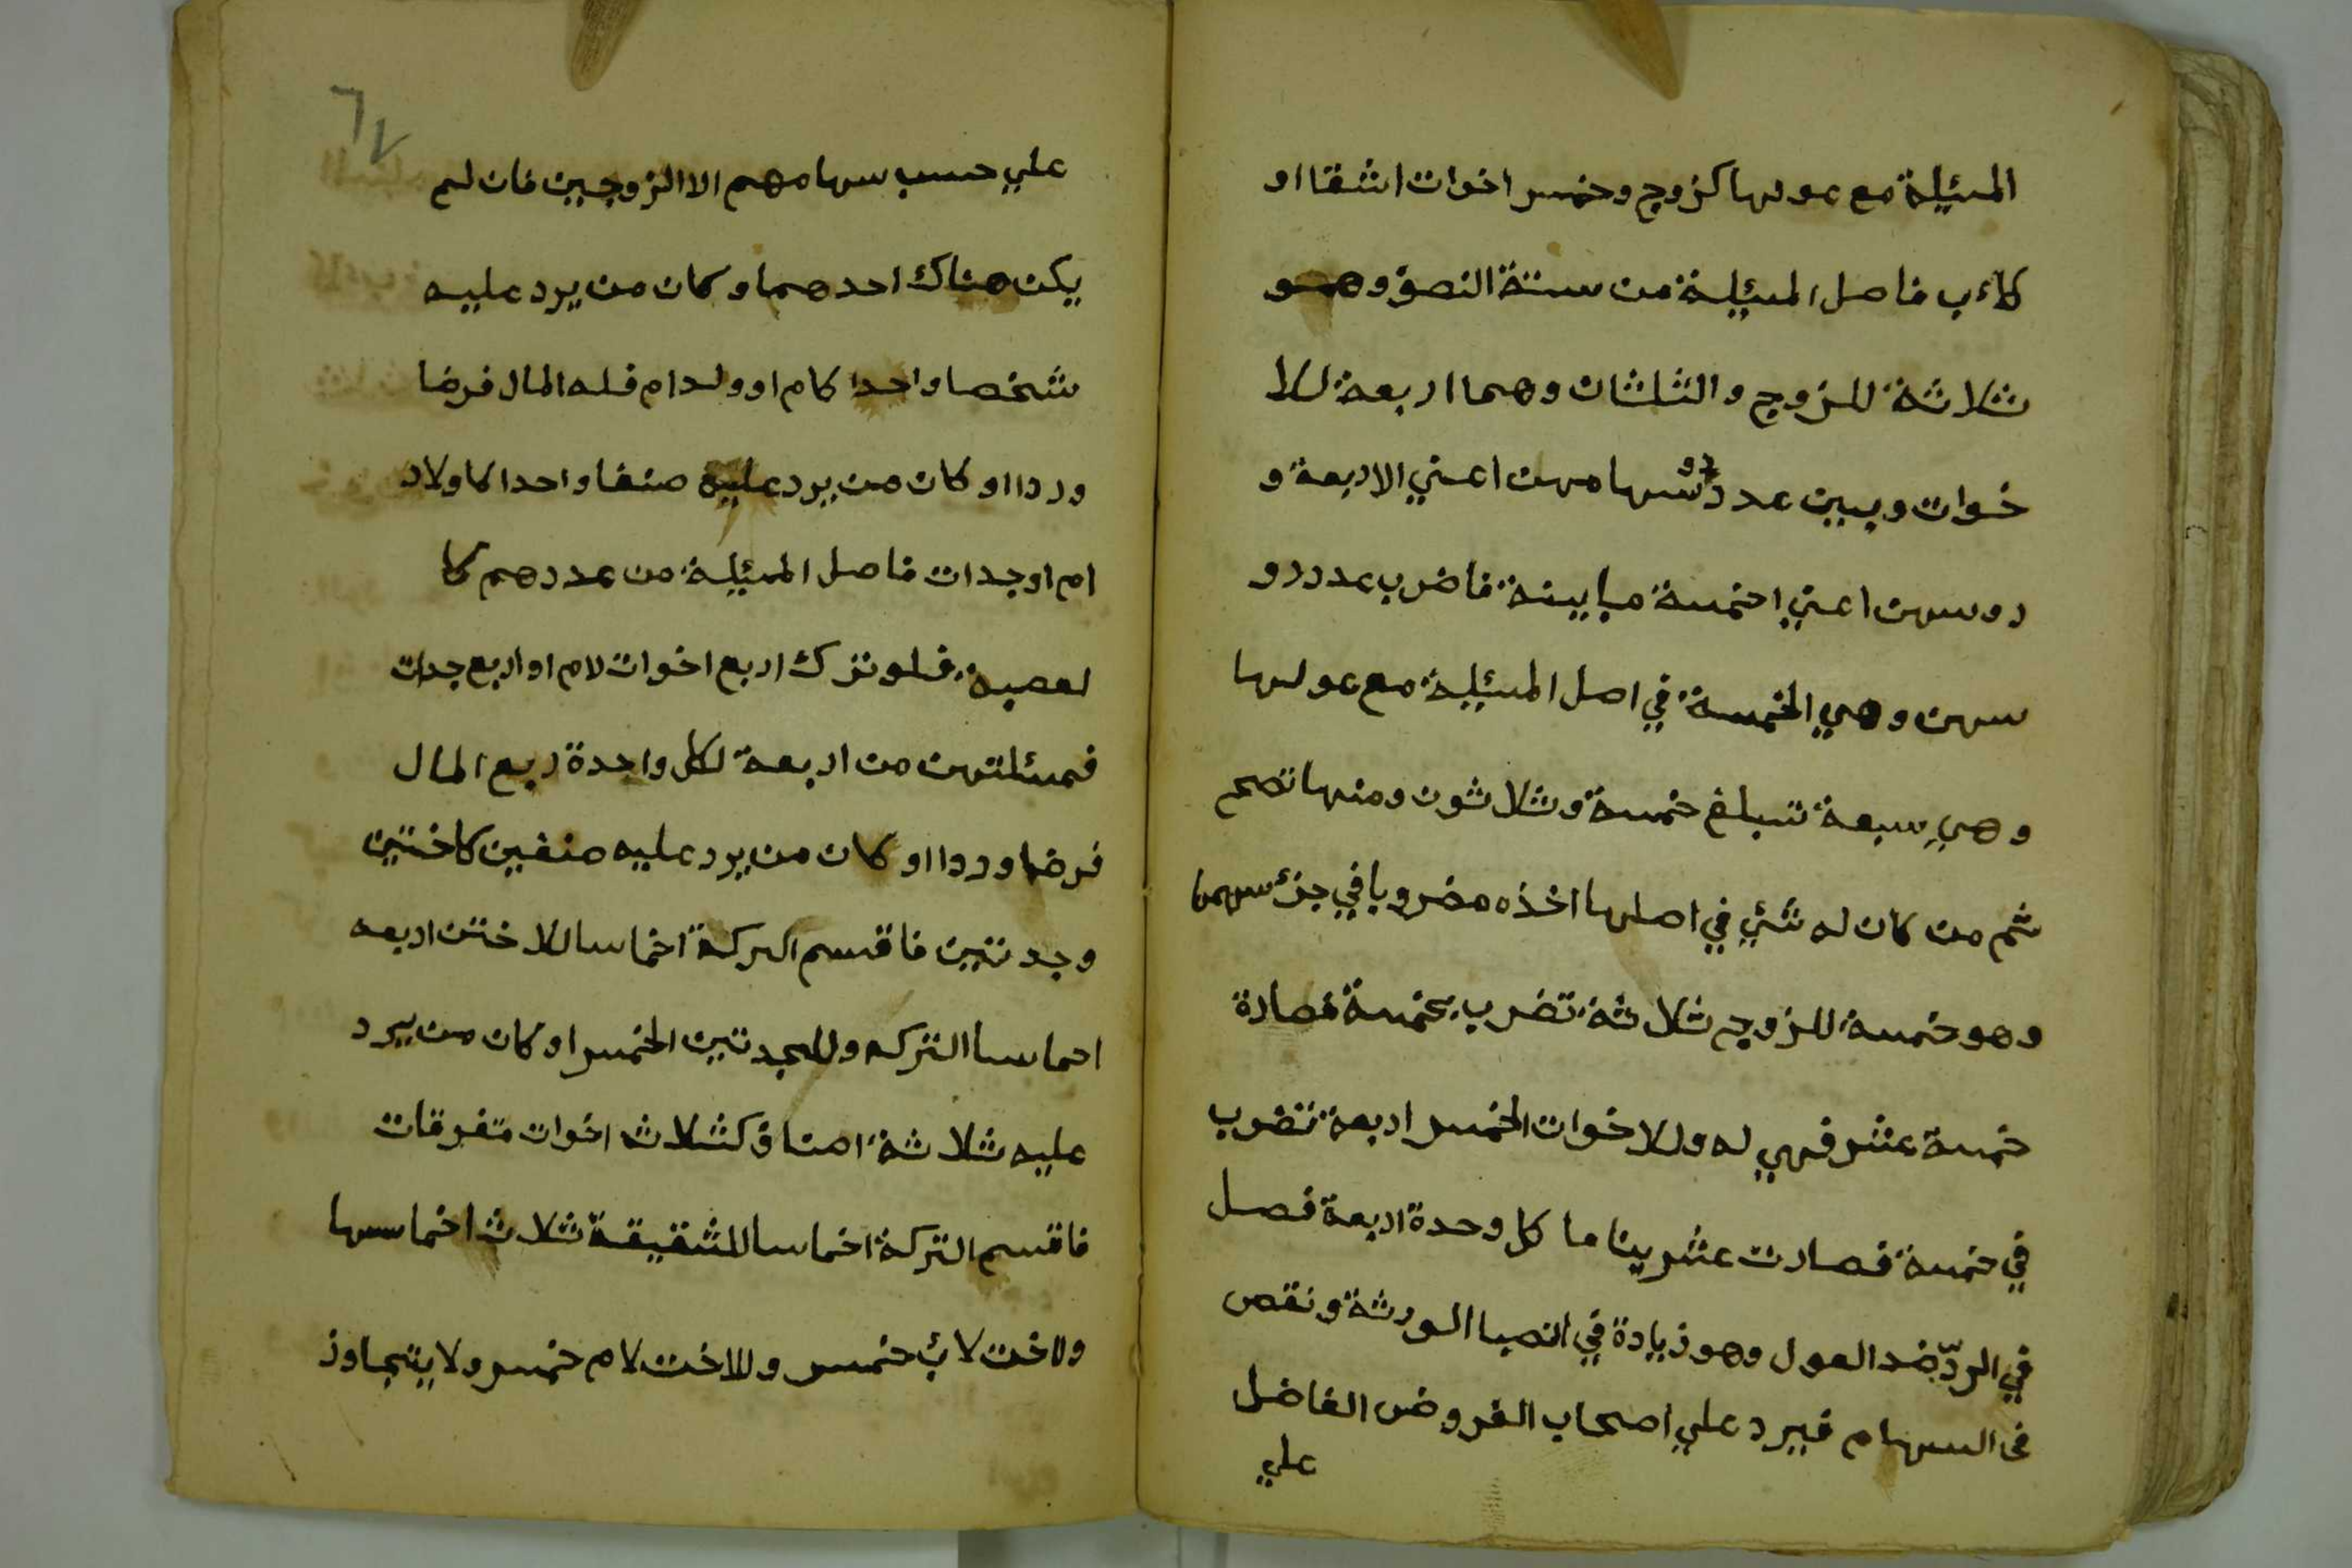 المسئلة مع عولها كزوج وخمس اخوات اشقا او
كلاءب فاصل المسئلة من ستة النصف وهو
ثلاثة للزوج والثلثان وهما اربعة للا
خوات وبين عدد سهامهن اعني الاربعة و
روسهن اعني اخمسة مباينة فاضرب عدد رو
سهن وهي الخمسة في اصل المسئلة مع عولها
وهي سبعة تبلغ خمسة وثلاثون ومنها تصح
ثم من كان له شئ في اصلها اخذه مضروبا في جزء سهمها
وهو خمسة للزوج ثلاثة تضرب بخمسة فصارة
خمسة عشر فهي له وللاخوات الخمس اربعة تضرب
في خمسة فصارت عشرينا ما كل وحدة اربعة فصل
في الردّ ضد العول وهو زيادة في انصبا الورثة ونقص
في السهام فيرد علي اصحاب الفروض الفاضل
علي
٦٧
علي حسب سهامهم الا الزوجين فان لم
يكن هناك احدهما وكان من يرد عليه
شخصا واحدا كام او ولد ام فله المال فرضا
وردا او كان من يرد عليه صنفا واحدا كاولاد
ام او جدات فاصل المسئلة من عددهم كا
لعصبة فلو ترك اربع اخوات لام او اربع جدات
فمسئلتهن من اربعة لكل واحدة ربع المال
فرضا وردا او كان من يرد عليه صنفين كاختين
وجدتين فاقسم التركة اخماسا للاختن اربعه
احماسا التركه وللجدتين الخمس او كان من يرد
عليه ثلاثة اصناف كثلاث اخوات متفرقات
فاقسم التركة اخماسا للشقيقة ثلاث اخماسها
ولاخت لاب خمس وللاخت لام خمس ولا يتجاوز